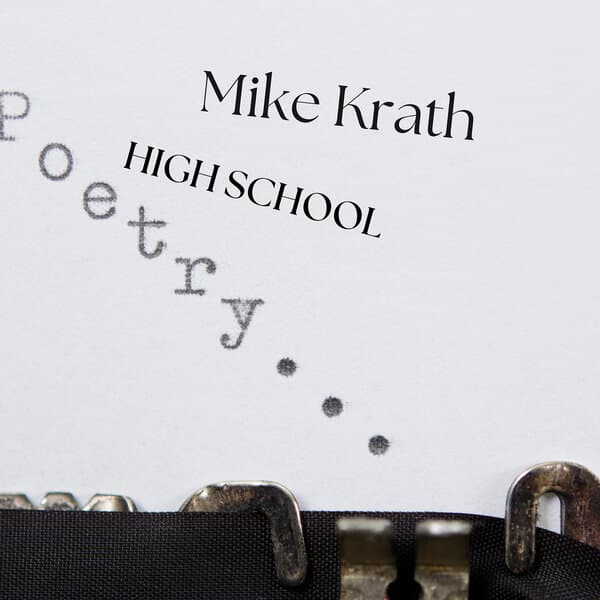 Mike Krath
HIGH SCHOOL
Poetry...